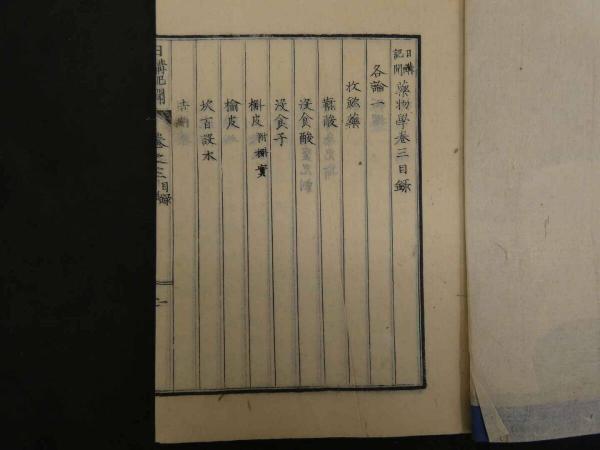 日講記聞 薬物學卷三目録
各論
收斂藥
鞣酸
没食酸
没食子
槲皮 附槲實
榆皮
坎百設木
日講記聞 卷之三目録 一